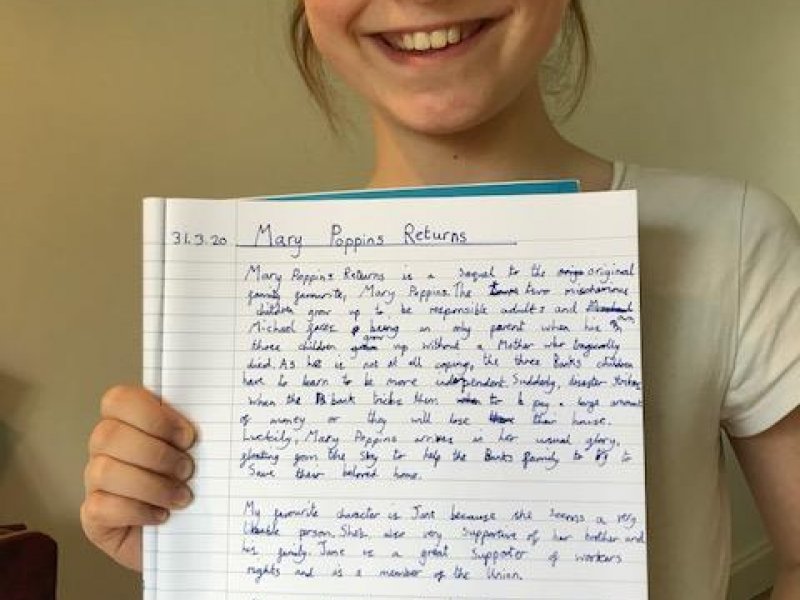 31.3.20 Mary Poppins Returns
Mary Poppins Returns is a sequel to the original
family favourite, Mary Poppins. The two mischievious
children grow up to be responsible adults and
Michael faces being an only parent when his
three children grow up without a Mother who tragically
died. As he is not at all coping, the three Banks children
have to learn to be more independent. Suddenly, disaster strikes
when the bank tricks them to pay a large amount
of money or they will lose their house.
Luckily, Mary Poppins arrives in her usual glory,
floating from the sky to help the Banks family to try to
save their beloved home.
My favourite character is Jane because she seems a very
likeable person. She's also very supportive of her brother and
his family. Jane is a great supporter of workers
rights and is a member of the Union.